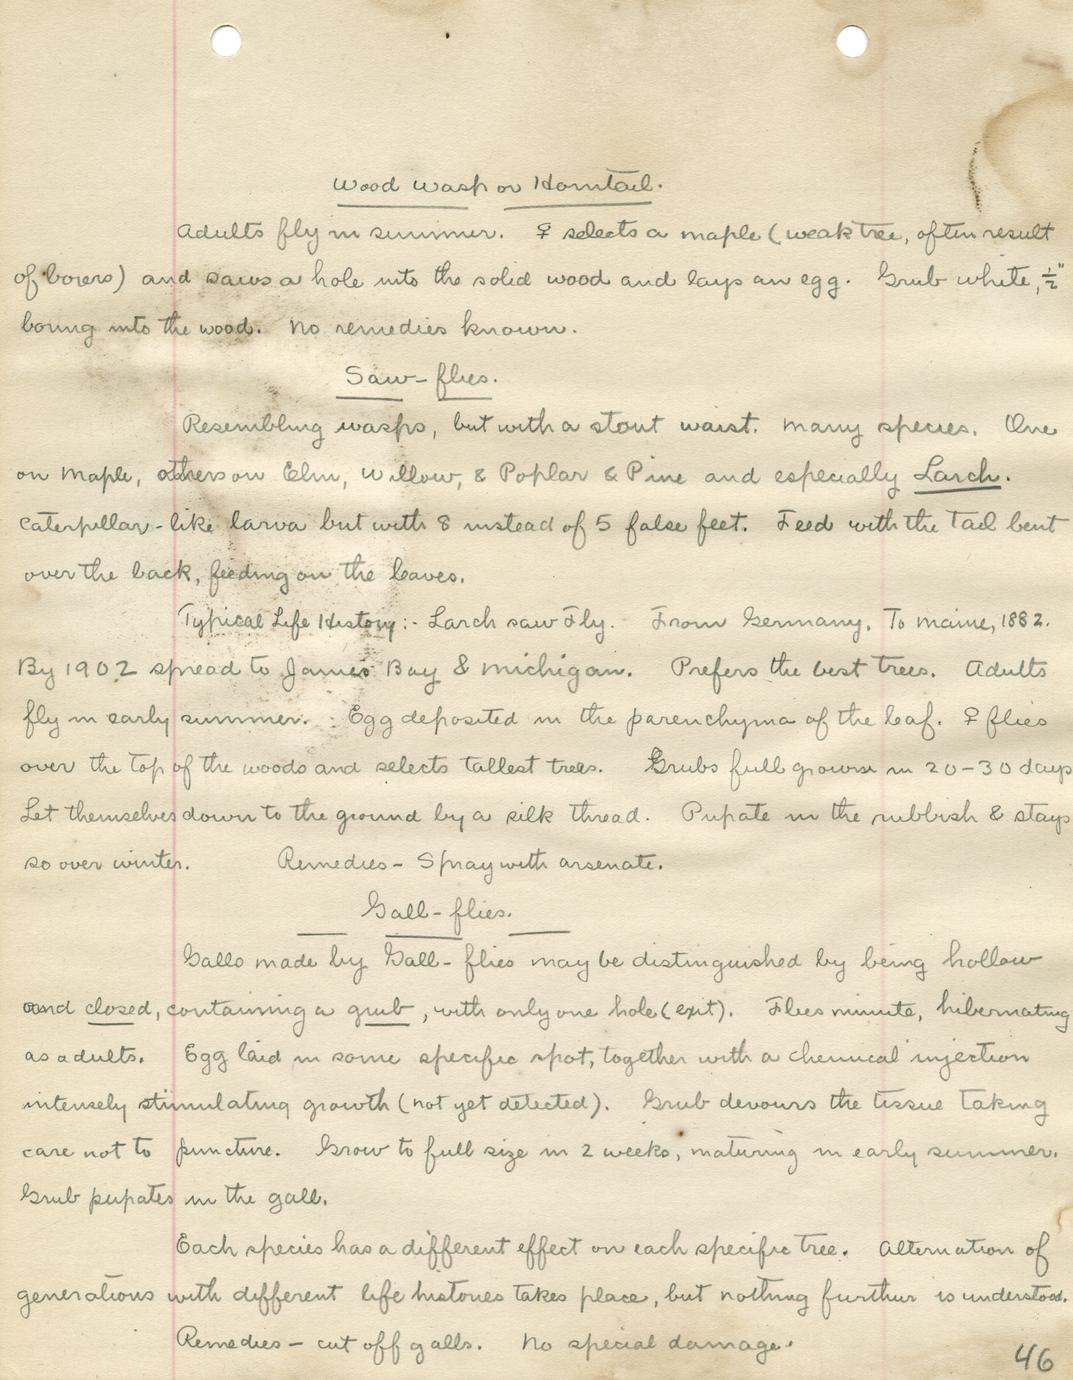 Wood wasp or Horntail.
Adults fly in summer. ♀ selects a maple (weak tree, often result
of borers) and saws a hole into the solid wood and lays an egg. Grub white, ½"
boring into the wood. No remedies known.
Saw-flies.
Resembling wasps, but with a stout waist. Many species. One
on Maple, others on Elm, Willow, & Poplar & Pine and especially Larch.
Caterpillar-like larva but with 8 instead of 5 false feet. Feed with the tail bent
over the back, feeding on the leaves.
Typical Life History:- Larch saw Fly. From Germany. To Maine, 1882.
By 1902 spread to James Bay & Michigan. Prefers the best trees. Adults
fly in early summer. Egg deposited in the parenchyma of the leaf. ♀ flies
over the top of the woods and selects tallest trees. Grubs full grown in 20-30 days
Let themselves down to the ground by a silk thread. Pupate in the rubbish & stays
so over winter. Remedies - Spray with arsenate.
Gall-flies.
Galls made by Gall-flies may be distinguished by being hollow
and closed, containing a grub, with only one hole (exit). Flies minute, hibernating
as adults. Egg laid in some specific spot, together with a chemical injection
intensely stimulating growth (not yet detected). Grub devours the tissue taking
care not to puncture. Grow to full size in 2 weeks, maturing in early summer.
Grub pupates in the gall.
Each species has a different effect on each specific tree. Alternation of
generations with different life histories takes place, but nothing further is understood.
Remedies - cut off galls. No special damage.
46